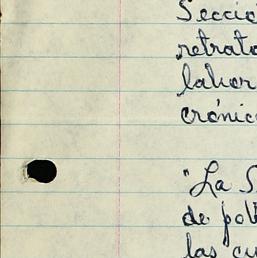 Secció
retrato
labor
crónic
"La S
de pob
las cu